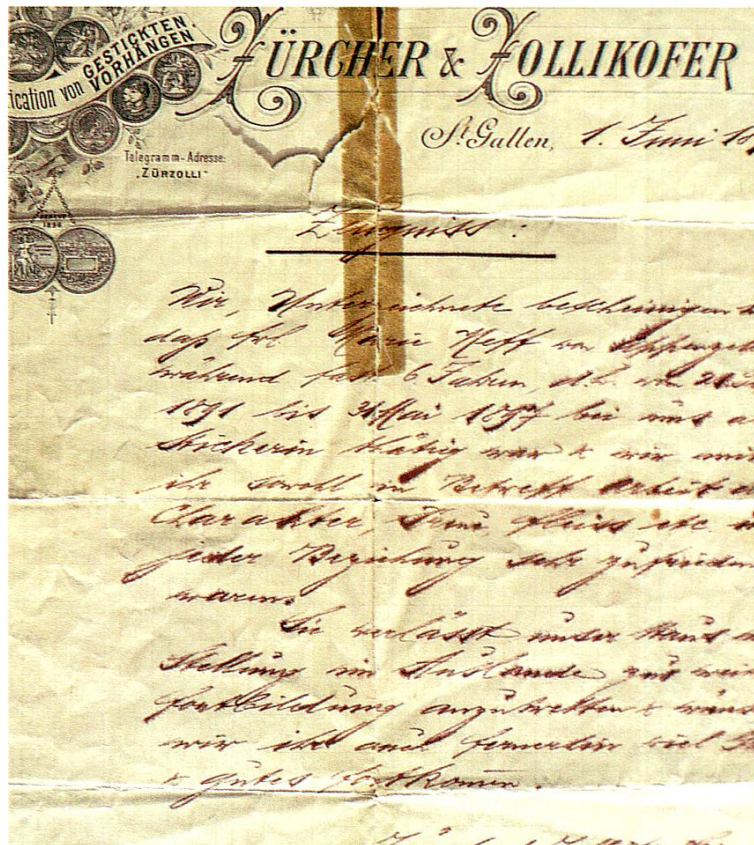 ication von GESTICKTEN VORHÄNGEN
ZÜRCHER & ZOLLIKOFER
St. Gallen, 1. Juni 18
Telegramm-Adresse:
"ZÜRZOLLI"
Zeugniss:
Wir, Unterzeichnete bescheinigen
daß Frl Marie Neff von Appenzell
während fast 6 Jahren, d.h. vom
1891 bis 31 Mai 1897 bei uns a
Stickerin thätig war & wir mit
ihr sowohl in Betreff Arbeit
Charakter, Treue, Fleiss etc. in
jeder Beziehung sehr zufrieden
waren.
Sie verlässt unser Haus
Stellung im Auslande zur
Fortbildung anzutretten &
wir ihr auch fernerhin viel
& gutes Fortkommen.